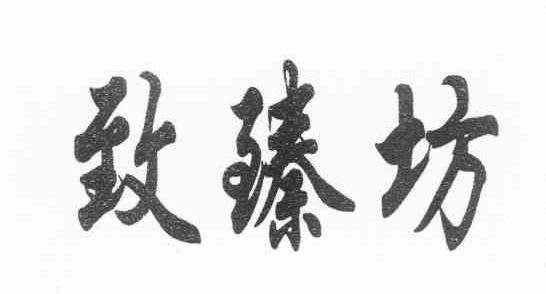 致臻坊